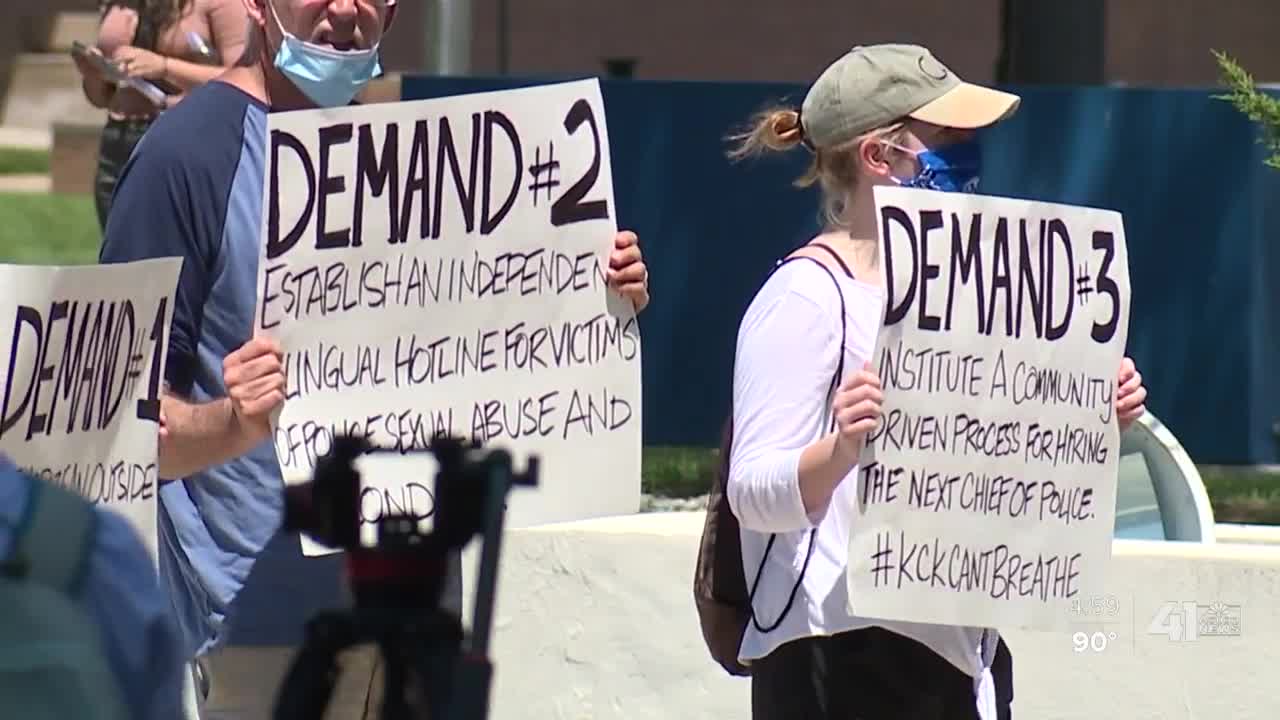 DEMAND #1
OUTSIDE
DEMAND #2
ESTABLISH AN INDEPENDEN
LINGUAL HOTLINE FOR VICTIMS
OF POLICE SEXUAL ABUSE AND
DEMAND #3
INSTITUTE A COMMUNITY
DRIVEN PROCESS FOR HIRING
THE NEXT CHIEF OF POLICE.
#KCKCANTBREATHE
4:59
90°
41
NEWS